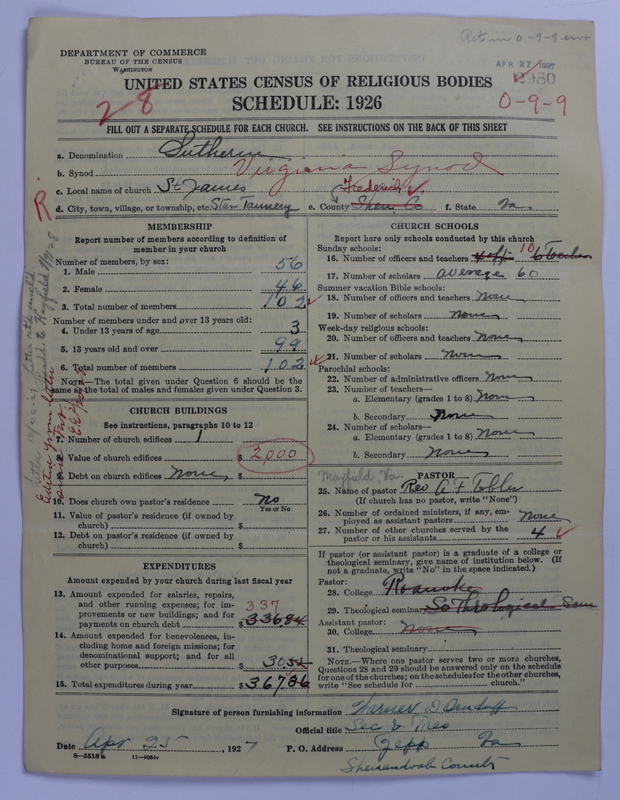 DEPARTMENT OF COMMERCE
BUREAU OF THE CENSUS
WASHINGTON
APR 27 1927
2980
UNITED STATES CENSUS OF RELIGIOUS BODIES
SCHEDULE: 1926
28
0-9-9
FILL OUT A SEPARATE SCHEDULE FOR EACH CHURCH. SEE INSTRUCTIONS ON THE BACK OF THIS SHEET
a. Denomination Lutheran
b. Synod Virginia Synod
c. Local name of church St James
Frederick
d. City, town, village, or township, etc. Star Tannery e. County Shen. Co f. State Va
R.
MEMBERSHIP
Report number of members according to definition of member in your church
Number of members, by sex:
1. Male 56
2. Female 46
3. Total number of members 102
Number of members under and over 13 years old:
4. Under 13 years of age 3
5. 13 years old and over 99
6. Total number of members 102
NOTE.—The total given under Question 6 should be the same as the total of males and females given under Question 3.
CHURCH BUILDINGS
See instructions, paragraphs 10 to 12
7. Number of church edifices 1
8. Value of church edifices $ 2,000
9. Debt on church edifices None $
10. Does church own pastor's residence No
Yes or No
11. Value of pastor's residence (if owned by church) $
12. Debt on pastor's residence (if owned by church) $
EXPENDITURES
Amount expended by your church during last fiscal year
13. Amount expended for salaries, repairs, and other running expenses; for improvements or new buildings; and for payments on church debt $ 336.84
337
14. Amount expended for benevolences, including home and foreign missions; for denominational support; and for all other purposes 30.52
15. Total expenditures during year $ 367.36
CHURCH SCHOOLS
Report here only schools conducted by this church
Sunday schools:
16. Number of officers and teachers 10 6 Teachers
17. Number of scholars average 60
Summer vacation Bible schools:
18. Number of officers and teachers None
19. Number of scholars None
Week-day religious schools:
20. Number of officers and teachers None
21. Number of scholars None
Parochial schools:
22. Number of administrative officers None
23. Number of teachers—
a. Elementary (grades 1 to 8) None
b. Secondary None
24. Number of scholars—
a. Elementary (grades 1 to 8) None
b. Secondary None
PASTOR
Mayfield, Va.
25. Name of pastor Rev A F Tobler
(If church has no pastor, write "None")
26. Number of ordained ministers, if any, employed as assistant pastors None
27. Number of other churches served by the pastor or his assistants 4
If pastor (or assistant pastor) is a graduate of a college or theological seminary, give name of institution below. (If not a graduate, write "No" in the space indicated.)
Pastor:
28. College Roanoke
29. Theological seminary So Theological Sem
Assistant pastor:
30. College None
31. Theological seminary
NOTE.—Where one pastor serves two or more churches, Questions 28 and 29 should be answered only on the schedule for one of the churches; on the schedules for the other churches, write "See schedule for church."
Signature of person furnishing information
Official title Sec & Tres
Date Apr 25, 1927 P. O. Address Zepp Va
8-5518a 11-9034a
Shenandoah County